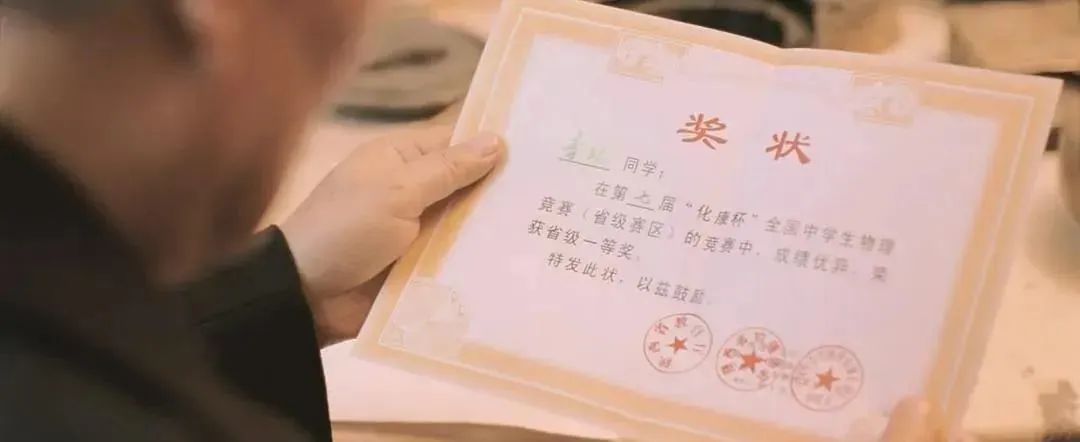 奖状
同学：
在第七届“化康杯”全国中学生物理
竞赛（省级赛区）的竞赛中，成绩优异，荣
获省级一等奖。
特发此状，以兹鼓励。